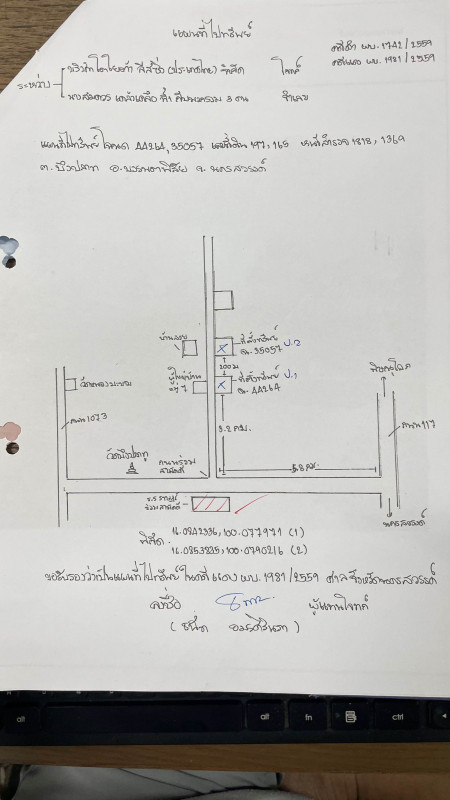 แผนที่ไปทรัพย์
คดีดำ ผบ. 1742/2559
คดีแดง ผบ. 1981/2559
ระหว่าง
บริษัท โตโยต้า ลีสซิ่ง (ประเทศไทย) จำกัด โจทก์
ที่ 1 กับพวกรวม 3 คน จำเลย
แผนที่ไปทรัพย์ โฉนด 44264, 35057 เลขที่ดิน 197, 165 หน้าสำรวจ 1818, 1369
ต. บึงปลาทู อ. บรรพตพิสัย จ. นครสวรรค์
บ้านสวน
ที่ตั้งทรัพย์ ป.2
ฉ. 35057
200 ม
ผู้ใหญ่บ้าน
หมู่ 7
ที่ตั้งทรัพย์ ป.1
ฉ. 44264
พิษณุโลก
ถนน 1073
3.2 กม.
ถนน 117
วัดบึงปลาทู
ถนนร่วม
สามัคคี
5.8 กม.
ร.ร ราษฎร์
ร่วมสามัคคี
นครสวรรค์
พิกัด
16.0842336, 100.077971 (1)
16.0853825, 100.0790216 (2)
ขอรับรองว่าเป็นแผนที่ไปทรัพย์ ในคดีแดง ผบ. 1981/2559 ศาลจังหวัดนครสวรรค์
ลงชื่อ ผู้แทนโจทก์
alt
alt
fn
ctrl